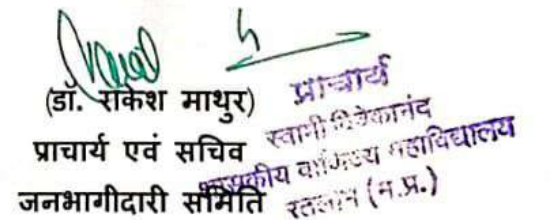 (डॉ. राकेश माथुर)
प्राचार्य एवं सचिव
जनभागीदारी समिति
प्राचार्य
स्वामी विवेकानंद
शासकीय वाणिज्य महाविद्यालय
रतलाम (म.प्र.)